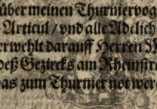 über meinen Thurniervog
Articul / vnd alle Adelich
erwehlt darauff Herren
deß Gezircks am Rheinstr
as zum Thurnier not were